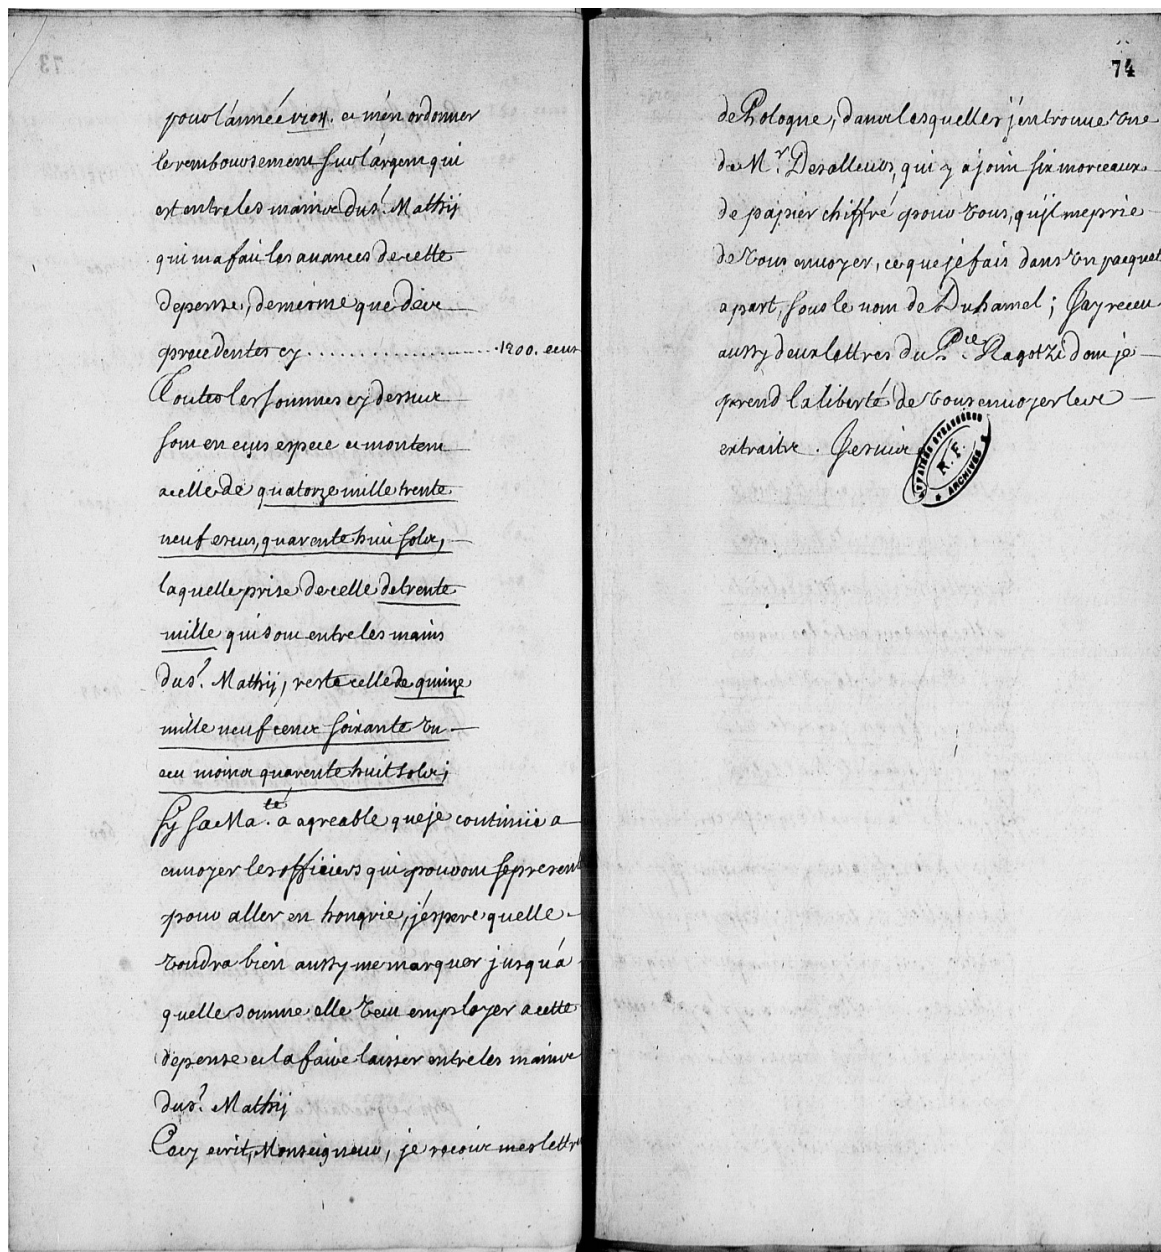 pour l'année 1704. et m'en ordonner
le remboursement sur l'argent qui
est entre les mains du sr. Mathÿ
qui m'a fait les avances de cette
depense, de mesme que des
precedentes cy .................... 1200. ecus
Toutes les sommes cy dessus
sont en ecus espece et montent
a celle de quatorze mille trente
neuf escus, quarente huit sols,
laquelle prise de celle de trente
mille qui sont entre les mains
du sr. Mathÿ, reste celle de quinze
mille neuf cens soixante un
ecu moins quarente huit sols;
Sy sa Ma.té a agreable que je continüe a
envoyer les officiers qui pouront se present
pour aller en hongrie, j'espere quelle
voudra bien aussy me marquer jusqu'á
quelle somme elle veut employer a cette
depense et la faire laisser entre les mains
du sr. Mathÿ
Cecy ecrit, Monseigneur, je reçois mes lettres
73
74
de Pologne, dans lesquelles j'en trouve une
de Mr. Desalleurs, qui y a joint six morceaux
de papier chiffré pour vous, qu'jl me prie
de vous envoyer, ce que je fais dans un pacquet
apart, sous le nom de Duhamel; J'ay receu
aussy deux lettres du P.ce Ragotzi dont je
prend la liberté de vous envoyer les
extraits. Je suis
AFFAIRES ETRANGERES
R. F.
ARCHIVES